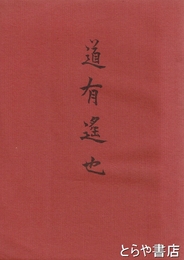 道有遥也
とらや書店